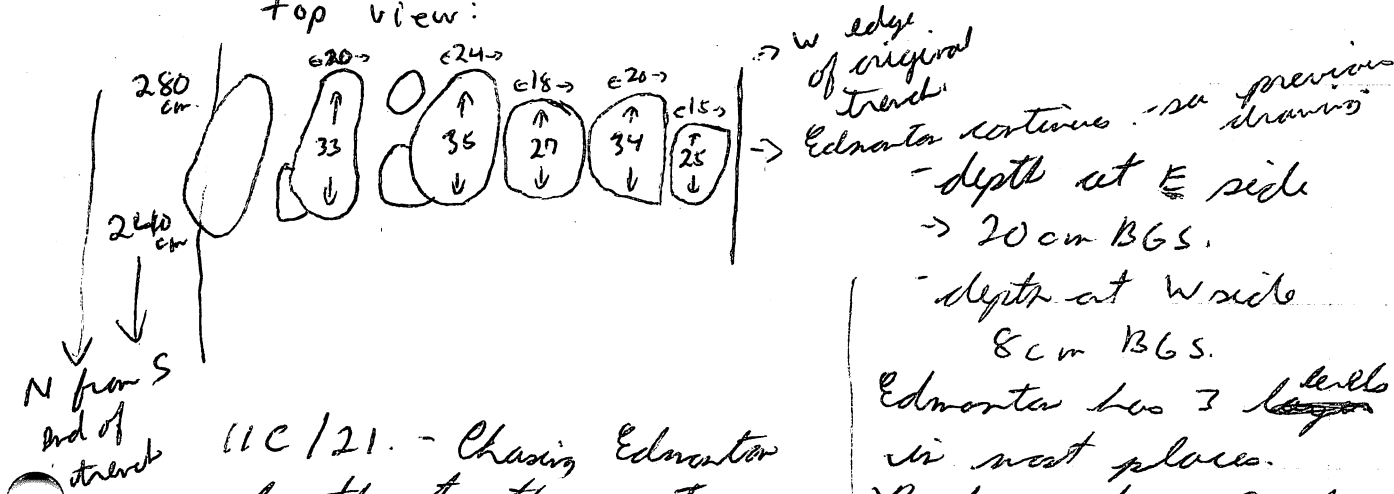 Top view:
280
cm.
←20→
←24→
←18→
←20→
←15→
33
35
27
34
25
240
cm
N from S
End of
trench
→ W edge
of original
trench.
→ Edmonton continues - see previous
drawing
- depth at E side
→ 20 cm BGS.
- depth at W side
8 cm BGS.
Edmonton has 3 levels
in most places.
11C/21. - Chasing Edmonton